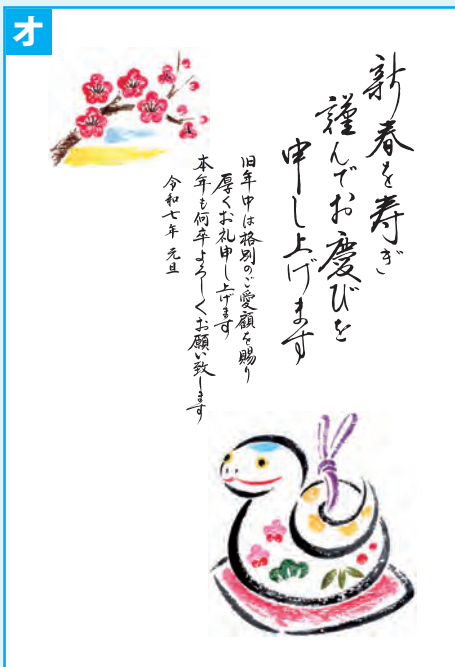 オ
新春を寿ぎ
謹んでお慶びを
申し上げます
旧年中は格別のご愛顧を賜り
厚くお礼申し上げます
本年も何卒よろしくお願い致します
令和七年 元旦